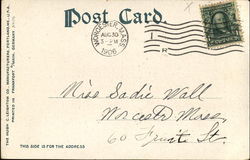 Post Card.
WORCESTER, MASS.
AUG 30
3-PM
1906
1
R
THE HUGH C. LEIGHTON CO., MANUFACTURERS, PORTLAND, ME., U.S.A.
PRINTED IN FRANKFORT GERMANY
Miss Sadie Wall
Worcester Mass.
60 Fruit St.
THIS SIDE IS FOR THE ADDRESS